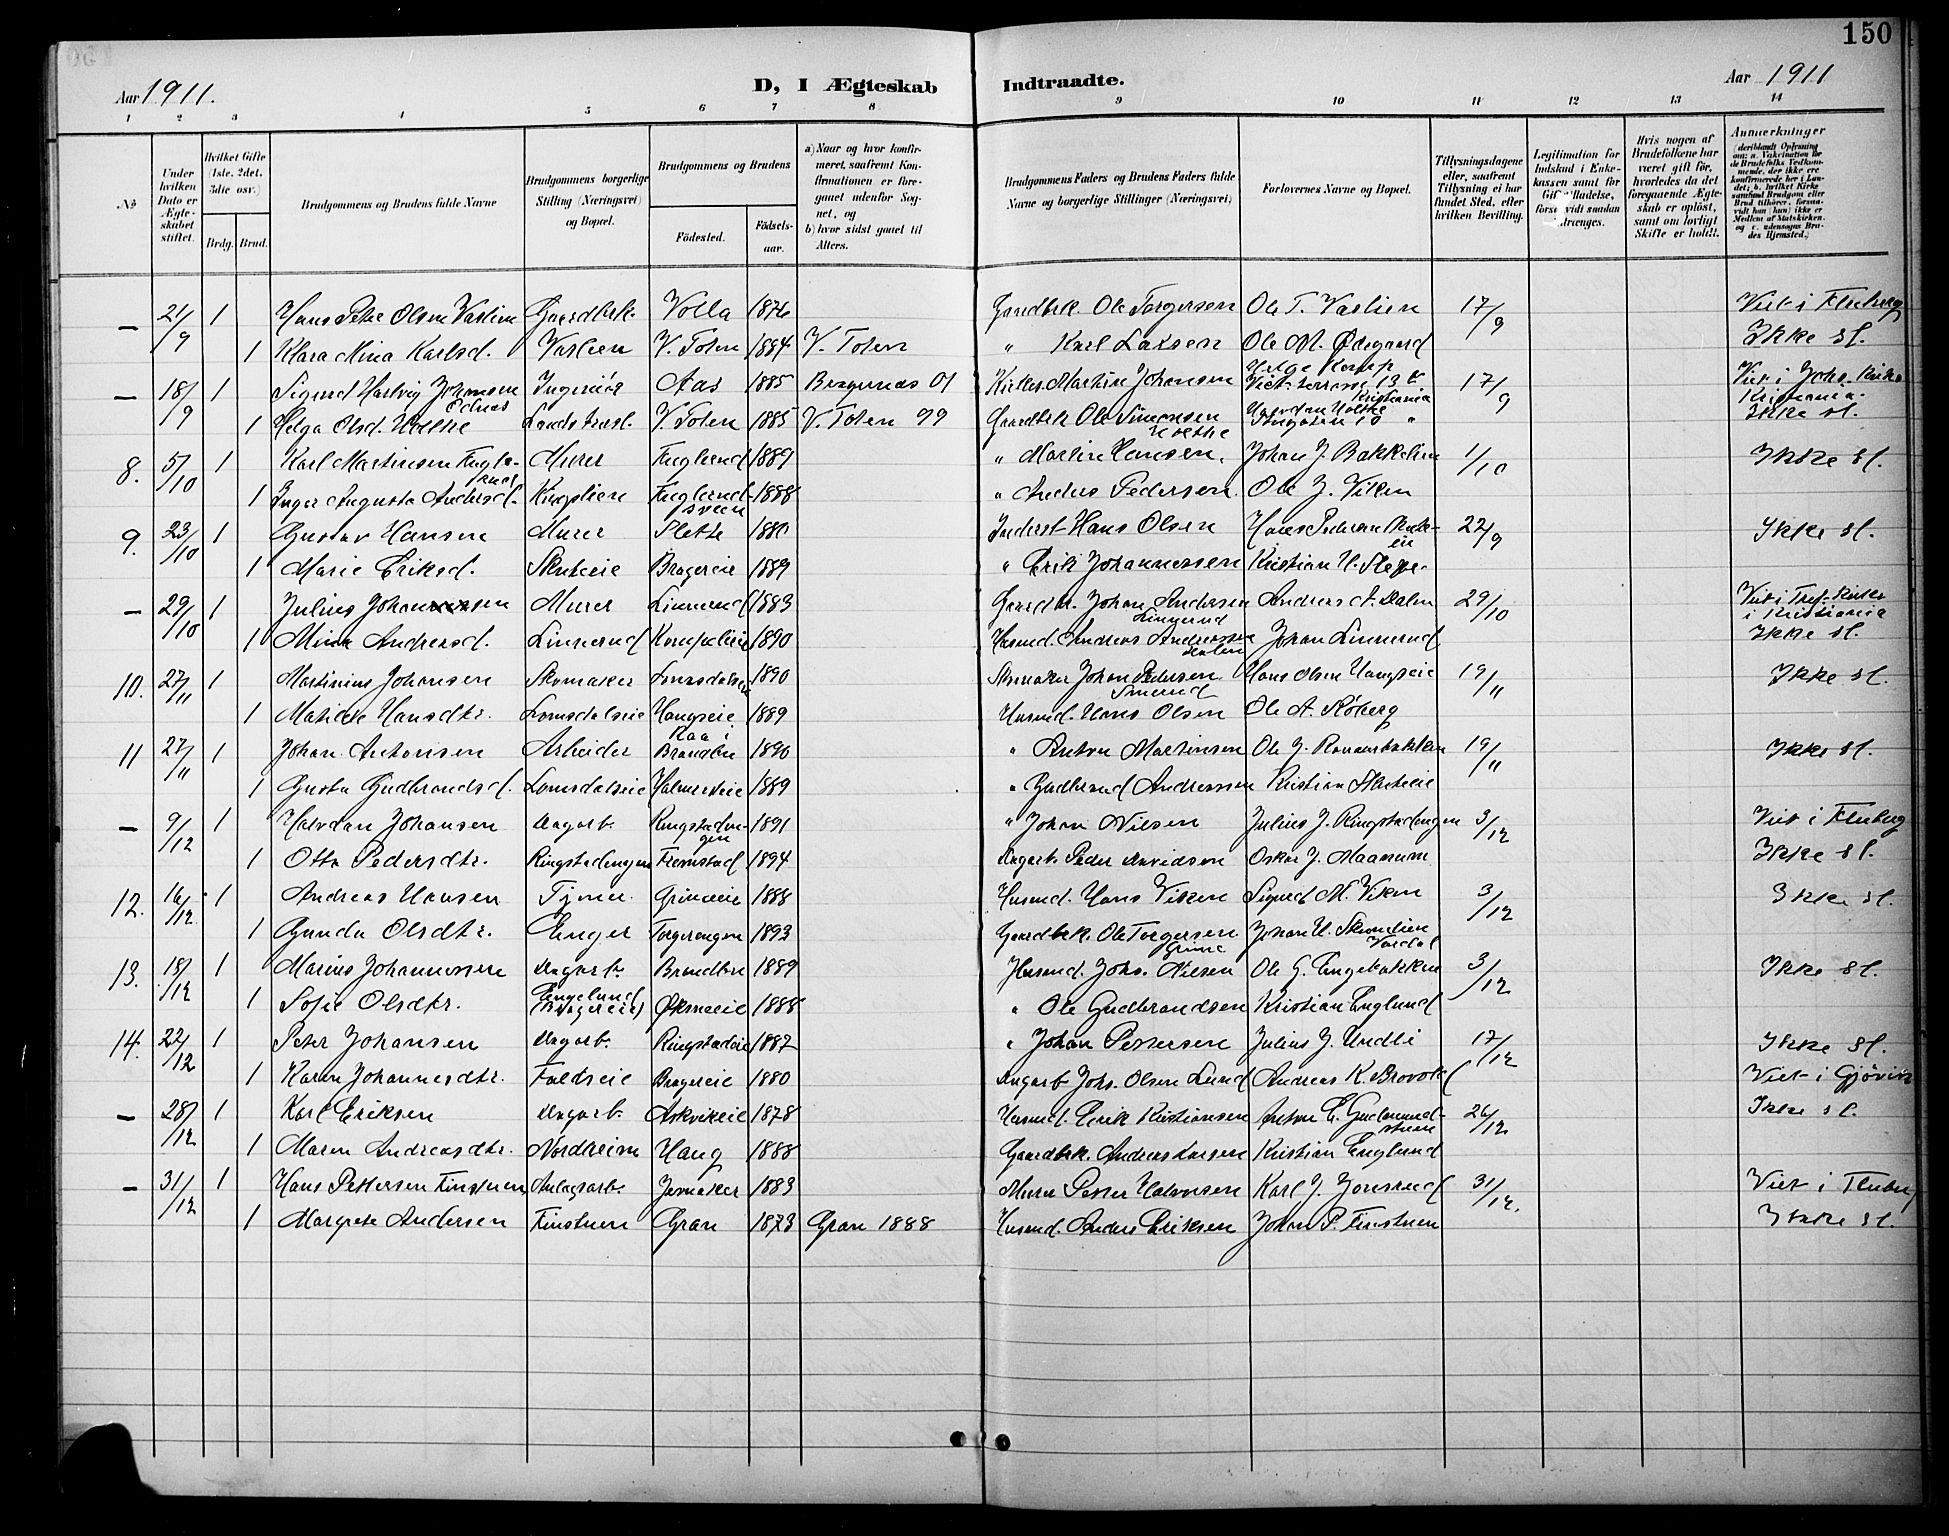 150
Aar 1911.
D, I Ægteskab Indtraadte.
Aar 1911
1 2 3 4 5 6 7 8 9 10 11 12 13 14
No
Under hvilken Dato er Ægteskabet stiftet.
Hvilket Gifte (1ste, 2det, 3die osv.)
Brdg. Brud.
Brudgommens og Brudens fulde Navne
Brudgommens borgerlige Stilling (Næringsvei) og Bopæl.
Brudgommens og Brudens
Fødested.
Fødsels-aar.
a) Naar og hvor konfirmeret, saafremt Konfirmationen er foregaaet udenfor Sognet, og
b) hvor sidst gaaet til Alters.
Brudgommens Faders og Brudens Faders fulde Navne og borgerlige Stillinger (Næringsvei)
Forlovernes Navne og Bopæl.
Tillysningsdagene eller, saafremt Tillysning ei har fundet Sted, efter hvilken Bevilling.
Legitimation for Indskud i Enkekassen samt for
Hvis nogen af Brudefolkene har været gift før, hvorledes da det foregaaende Ægteskab er opløst, samt om lovligt Skifte er holdt.
Anmerkninger
(deriblandt Oplysning om: a. Vakcination for de Brudefolks Vedkommende, der ikke ere konfirmerede her i Landet; b. hvilket Kirkesamfund Brudgom eller Brud tilhører, forsaavidt han (hun) ikke er Medlem af Statskirken, og c. udensogns Brudes Hjemsted.)
— 21/9 1 Hans Peter Olsen Vaslien Gaardbrk. Volla 1876 Gaardbrk. Ole Torgersen Ole T. Vaslien 17/9 Viet i Fluberg
1 Klara Mina Karlsd. Vaslien V. Toten 1884 V. Toten " Karl Larsen Ole M. Ødegaard Ikke sl.
— 18/9 1 Sigurd Hartvig Johansen Ingeniør Aas 1885 01 Martin Johansen 17/9 Viet i Johs. Kirke Kristiania.
1 Helga Olsd. Holthe V. Toten 1885 V. Toten 99 Gaardbrk Ole Simensen Holthe Ikke sl.
8. 5/10 1 Karl Martinsen Murer Fuglerud 1889 " Martin Hansen. Johan J. Bakkelien 1/10 Ikke sl.
1 Inger Augusta Andersd. 1888 " Anders Pedersen Ole J. Viken
9. 23/10 1 Gustav Hansen Murer Slette 1880 Inderst Hans Olsen Hans Pedersen 22/9 Ikke sl.
1 Marie Eriksd. Skuteeie Bragereie 1889 " Erik Johannessen Kristian H.
— 29/10 1 Julius Johansen Murer Linnerud 1883 Gaardbr. Johan Andersen Linnerud Andreas A. Dalen 29/10 Viet i Kristiania
1 Mina Andreasd. Linnerud 1890 Husmd. Andreas Andreassen Dalen Johan Linnerud Ikke sl.
10. 27/11 1 Martinius Johansen Skomaker 1890 Skomaker Johan Pedersen Hans Olsen Haugseie 19/11 Ikke sl.
1 Matilde Hansdtr. Lomsdalseie Haugseie 1889 Husmd. Hans Olsen Ole A. Røberg
11 27/11 1 Johan Antonsen Arbeider Raa i Brandbu 1890 " Anton Martinsen Ole J. 19/11 Ikke sl.
1 Gusta Gudbrandsd. Lomsdalseie 1889 " Gudbrand Andreassen Kristian Skuteeie
— 9/12 1 Halvdan Johansen Dagarb. Ringstadengen 1891 " Johan Nilsen Julius J. Ringstadengen 3/12 Viet i Fluberg
1 Otta Pedersdtr. Ringstadengen Fremstad 1894 Dagarb. Peder Davidsen Oskar J. Maanum Ikke sl.
12. 16/12 1 Andreas Hansen Tjener. Grimeeie 1888 Husmd. Hans Viken Sigurd M. Viken 3/12 Ikke sl.
1 Gunda Olsdtr. Enger Torgerengen 1893 Gaardbrk. Ole Torgersen Grime Johan H. Skundlien Vardal
13. 18/12 1 Marius Johannessen Dagarb. Brandbu 1889 Husmd. Johs. Nilsen Ole G. Engebakken 3/12 Ikke sl.
1 Sofie Olsdtr. Englund (Bragereie) Øksneeie 1888 " Ole Gudbrandsen Kristian Englund
14. 22/12 1 Peter Johansen Dagarb. Ringstadeie 1887 " Johan Pettersen Julius J. Undli 17/12 Ikke sl.
1 Karen Johannesdtr. Faldseie Bragereie 1880 Dagarb Johs. Olsen Lund Andreas K. Brovold Viet i Gjövik
— 28/12 1 Karl Eriksen Dagarb. Askvikeie 1878 Husmd. Erik Kristiansen Anton E. 26/12 Ikke sl.
1 Maren Andreasdtr. Nordheim Haug 1888 Gaardbrk. Andreas Larsen Kristian Englund
— 31/12 1 Hans Pettersen Finstuen Anlagsarb. Jevnaker 1883 Murer Petter Halvorsen Karl J. Jonsrud 31/12. Viet i Fluberg
1 Margrete Andersen Finstuen Gran 1873 Gran 1888 Husmd. Anders Eriksen Johan P. Finstuen Ikke sl.